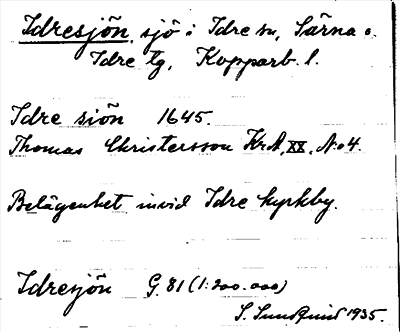 Idresjön, sjö i Idre sn, Särna o.
Idre tg, Kopparb. l.
Idre siön 1645.
Thomas Christersson Kr.A, XX, No 4.
Belägenhet invid Idre kyrkby.
Idresjön G. 81 (1:200.000)
S. Sundquist 1935.